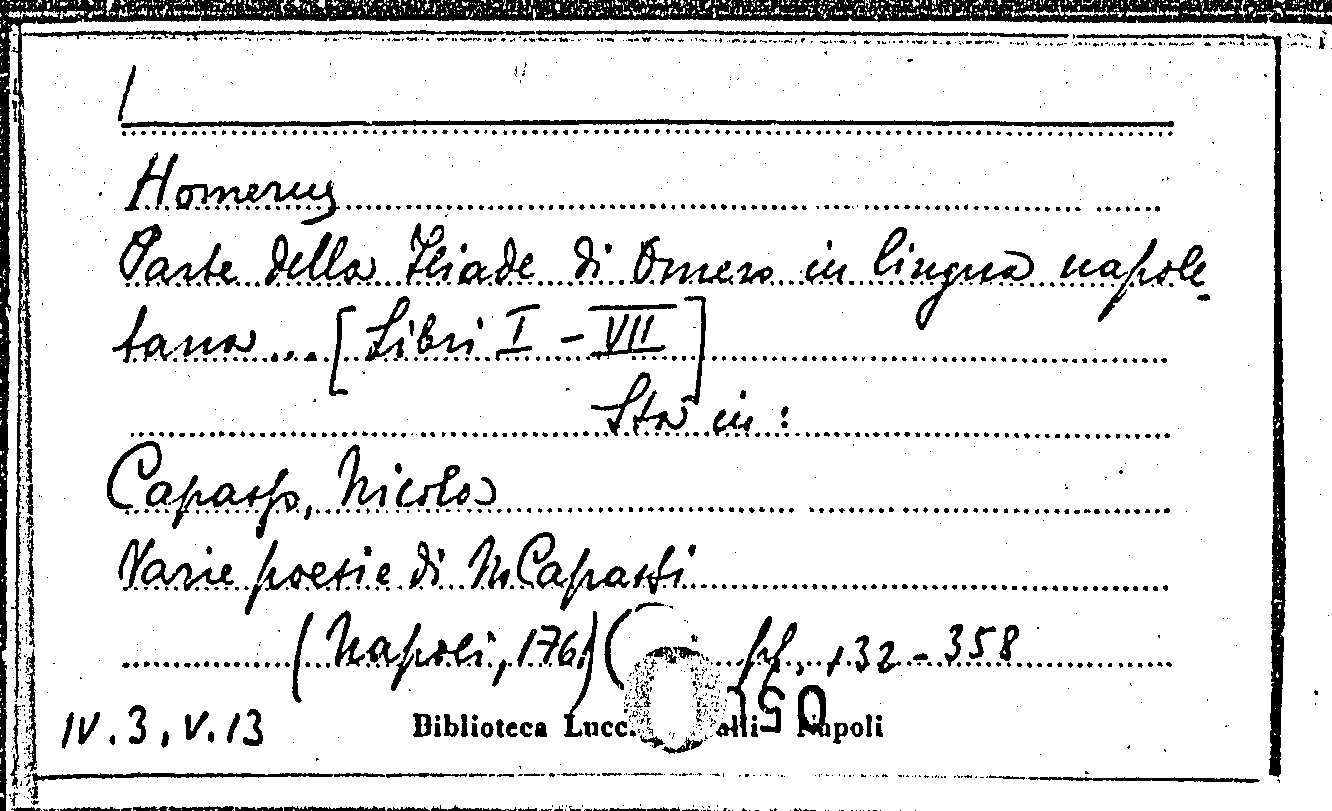 Homerus
Parte della Iliade di Omero in lingua napole-
tana ... [Libri I - VII]
Sta in:
Capasso, Nicola
Varie poesie di N. Capassi
(Napoli, 176 pp. 132-358
IV.3, V.13 Biblioteca Lucc. Napoli